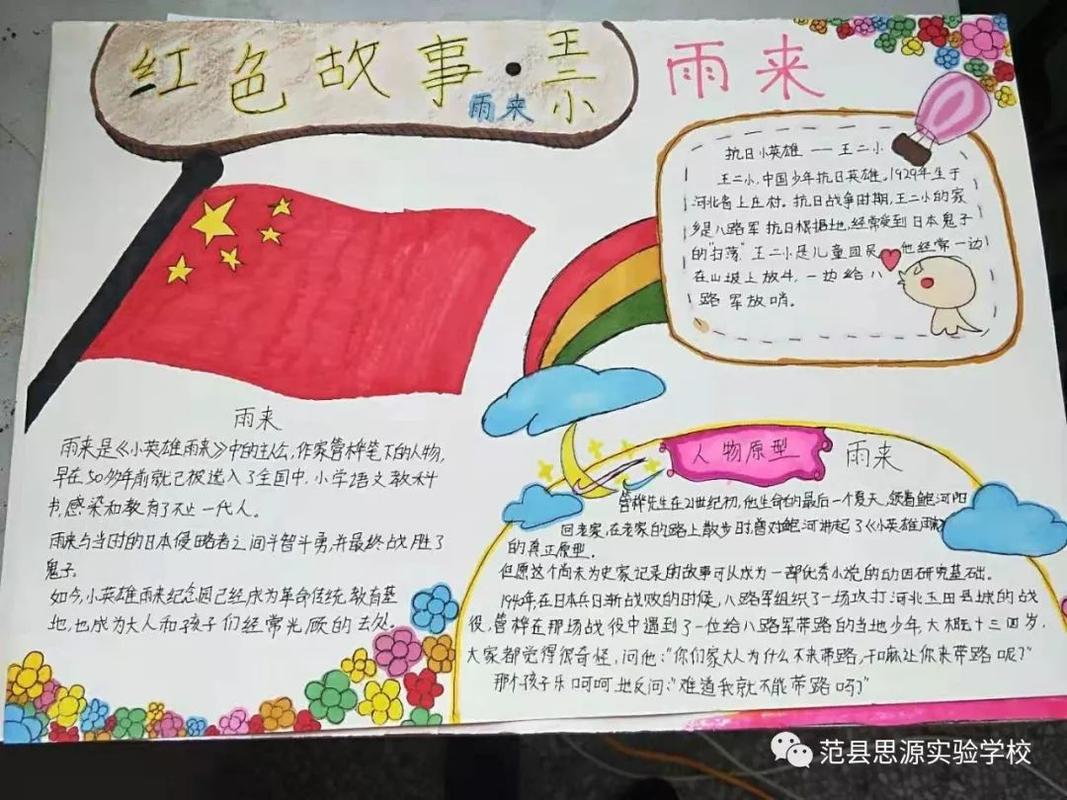 红色故事·王二小
雨来
雨来
抗日小英雄——王二小
王二小,中国少年抗日英雄。1929年生于
河北省上庄村。抗日战争时期,王二小的家
乡是八路军抗日根据地,经常受到日本鬼子
的"扫荡".王二小是儿童团员 他经常一边
在山坡上放牛,一边给八
路军放哨。
雨来
雨来是《小英雄雨来》中的主人公,作家管桦笔下的人物,
早在50多年前就已被选入了全国中、小学语文教科
书,感染和教育了不止一代人。
雨来与当时的日本侵略者之间斗智斗勇,并最终战胜了
鬼子。
如今,小英雄雨来纪念园已经成为革命传统教育基
地,也成为大人和孩子们经常光顾的去处.
人物原型 雨来
管桦先生在21世纪初,他生命的最后一个夏天,领着鲍河阳
回老家,在老家的路上散步时,曾对鲍河讲起了《小英雄雨来》
的真正原型.
但愿这个尚未为史家记录的故事可以成为一部优秀小说的动因研究基础。
1940年在日本兵日渐战败的时候,八路军组织了一场攻打河北玉田县城的战
役,管桦在那场战役中遇到了一位给八路军带路的当地少年,大概十三四岁.
大家都觉得很奇怪,问他:"你们家大人为什么不来带路,干嘛让你来带路呢?"
那个孩子乐呵呵地反问:"难道我就不能带路吗?"
范县思源实验学校